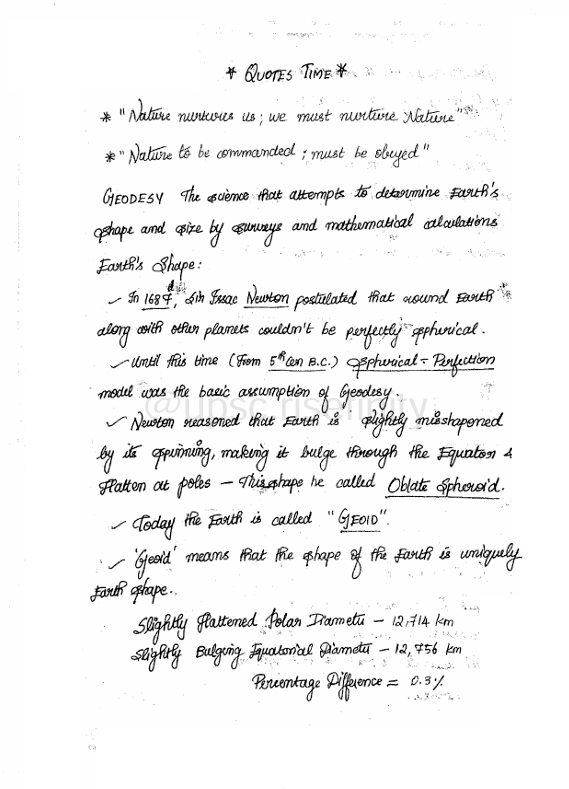 * QUOTES TIME *
* "Nature nurtures us; we must nurture Nature"
* "Nature to be commanded ; must be obeyed"
GEODESY The science that attempts to determine Earth's
shape and size by surveys and mathematical calculations
Earth's Shape:
✓ In 1687, Sir Issac Newton postulated that round Earth
along with other planets couldn't be perfectly spherical.
✓ Until this time (From 5th Cen B.C.) Spherical - Perfection
model was the basic assumption of Geodesy.
@upsc.riseinfinity
✓ Newton reasoned that Earth is slightly misshapened
by its spinning, making it bulge through the Equator &
flatten at poles – This shape he called Oblate Spheroid.
✓ Today the Earth is called "GEOID".
✓ 'Geoid' means that the shape of the Earth is uniquely
Earth shape.
Slightly flattened Polar Diameter – 12,714 km
Slightly Bulging Equatorial Diameter – 12,756 km
Percentage Difference = 0.3%